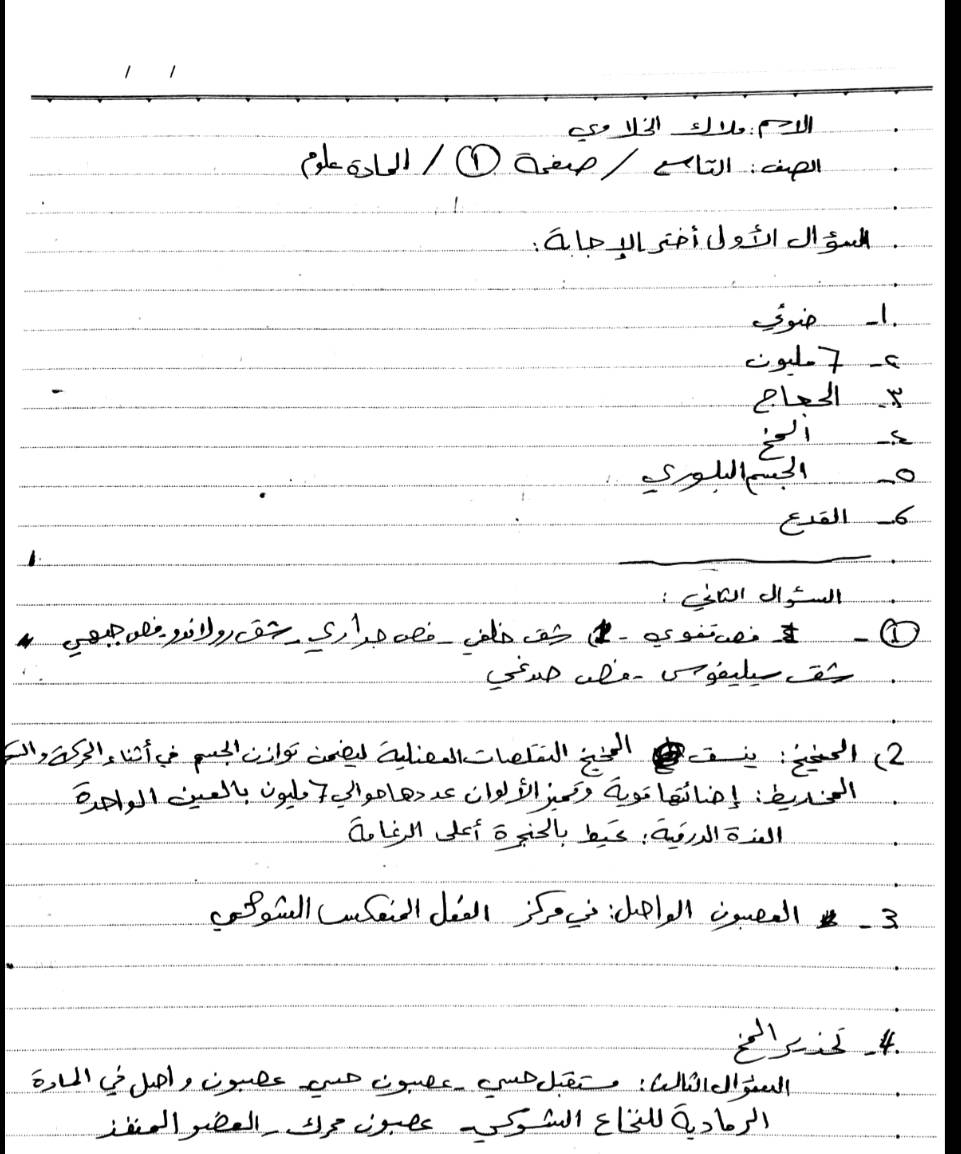 / /
الاسم: ملاك الخلاوي
الصف: التاسع / صفحة ① / المادة علوم
السؤال الأول أختر الإجابة:
١- ضوئي
٢- 7 مليون
٣- الحجاج
٤- ألمخ
٥- الجسم البلوري
٦- القدع
السئوال الثاني:
① - فص قفوي - شق خلفي - فص جداري - شق رولاندو - فص جبهي
شق سيليفوس - فص صدغي
2) المخيخ: ينسق المخيخ التقلصات العضلية ليضمن توازن الجسم في أثناء الحركة
المخاريط: إضائتها قوية وتميز الألوان عددها حوالي 7 مليون بالعين الواحدة
الغدة الدرقية: تحيط بالحنجرة أعلى الرغامة
3 - العصبون الواصل: في مركز الفعل المنعكس الشوكي
4- تخدير المخ
السئوال الثالث: مستقبل حسي - عصبون حسي - عصبون واصل في المادة
الرمادية للنخاع الشوكي - عصبون محرك - العضو المنفذ